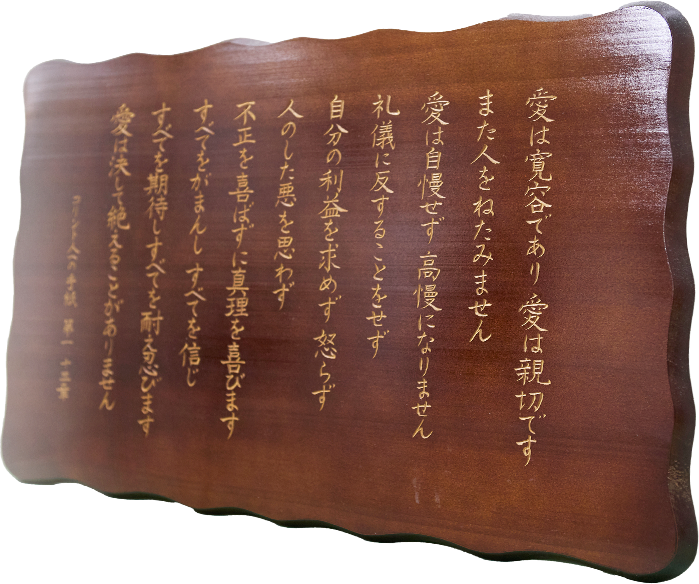 愛は寛容であり 愛は親切です
また人をねたみません
愛は自慢せず 高慢になりません
礼儀に反することをせず
自分の利益を求めず 怒らず
人のした悪を思わず
不正を喜ばずに真理を喜びます
すべてをがまんし すべてを信じ
すべてを期待しすべてを耐え忍びます
愛は決して絶えることがありません
コリント人への手紙 第一 十三章